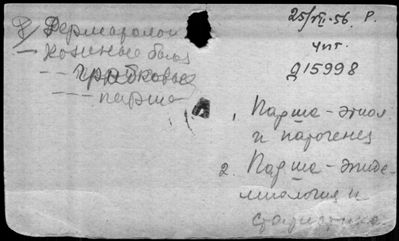 Дерматолог
— Кожные бол
— — грибковые
— — — парша
25/VII-56. Р.
Чит.
Д15998
1. Парша – этиол
и патогенез
2. Парша – эпиде-
миология и
статистика